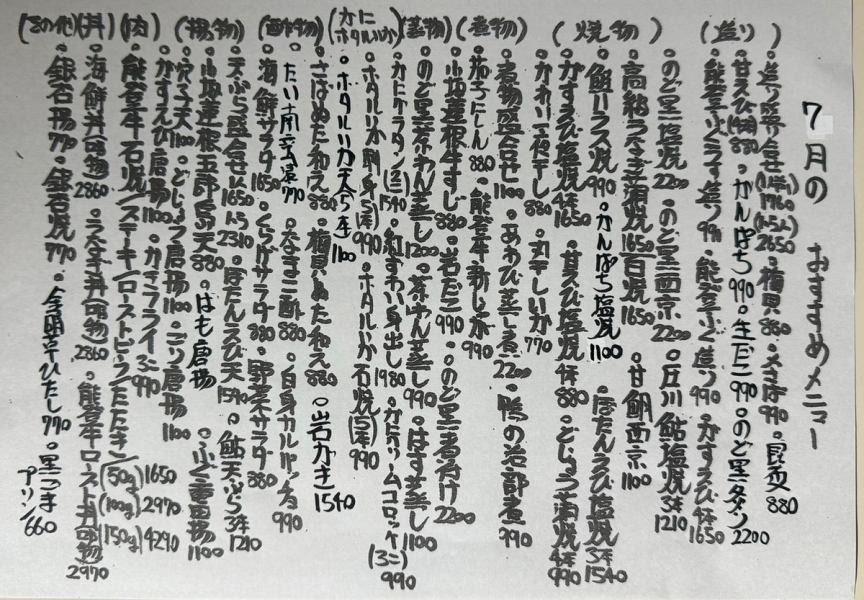 7月の おすすめメニュー
(造り)
・造り盛り合せ(1人前)1760(2〜3人)2650 ・梅貝880 ・〆さば990 ・昆布〆880
・甘えび(10本)880 ・かんぱち990 ・生だこ990 ・のど黒炙り2200
・能登ふぐうす造り990 ・能登ふぐ造り990 ・がすえび4本1650
(焼物)
・のど黒塩焼2200 ・のど黒西京2200 ・庄川鮎塩焼3本1210
・高級うなぎ蒲焼1650 白焼1650 ・甘鯛西京1100
・鰤ハラス焼990 ・かんぱち塩焼1100 ・ぼたんえび塩焼3本1540
・がすえび塩焼4本1650 ・甘えび塩焼4本880 ・どじょう蒲焼4本990
・かれい一夜干し880 ・丸干しいか770
(煮物)
・煮物盛合せ1100 ・あわび蒸し煮2200 ・鴨の治部煮990
・茄子にしん880 ・能登牛新じゃが990
・小坂蓮根牛すじ880 ・岩だこ990 ・のど黒煮付け2200
(蒸物)
・のど黒茶わん蒸し1200 ・茶わん蒸し990 ・はす蒸し1100
(かに ホタルいか)
・かにグラタン(2コ)1540 ・紅ずわい身出し1980 ・かにクリームコロッケ(3コ)990
・ホタルいか刺身(5本)990 ・ホタルいか石焼(5本)990
・ホタルいか天ぷら5本1100
(酢物)
・さばぬた和え880 ・梅貝ぬた和え880 ・岩がき1540
・たい南蛮漬770 ・たまご酢880 ・白身カルパッチョ990
・海鮮サラダ1650 ・くらげサラダ880 ・野菜サラダ880
(揚物)
・天ぷら盛合せ1650 2310 ・ぼたんえび天1540 ・鮎天ぷら3本1210
・小坂蓮根五郎島天880 ・はも唐揚 ・ふぐ唐揚1100
・穴子天1100 ・どじょう唐揚1100 ・ニギリ唐揚1100
・がすえび唐揚1100 ・かきフライ3コ990
(肉)
・能登牛石焼/ステーキ/ローストビーフ/たたき(50g)1650(100g)2970(150g)4290
(丼)
・海鮮丼(吸物)2860 ・うな丼(吸物)2860 ・能登牛ロースト丼(吸物)2970
(その他)
・銀杏揚770 ・銀杏焼770 ・金時草ひたし770 ・黒ごまプリン660